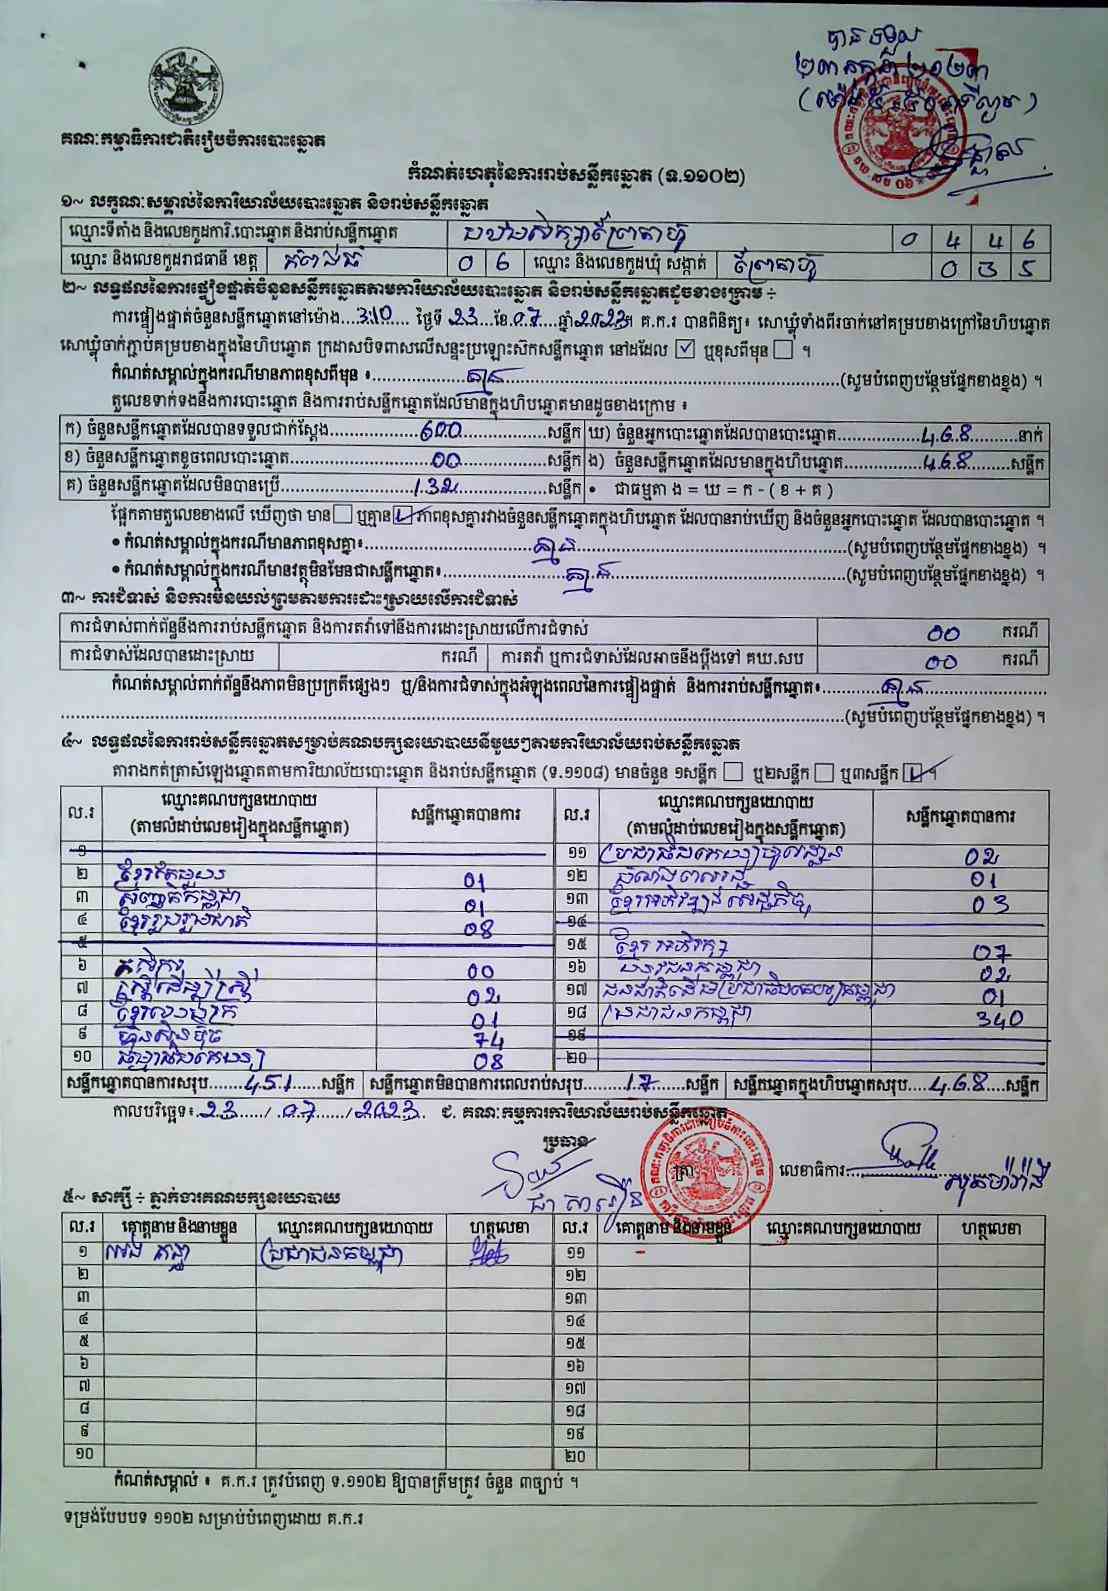 បានទទួល
២៣ កក្កដា ២០២៣
គណៈកម្មាធិការជាតិរៀបចំការបោះឆ្នោត
កំណត់ហេតុនៃការរាប់សន្លឹកឆ្នោត (ទ.១១០២)
១~ លក្ខណៈសម្គាល់នៃការិយាល័យបោះឆ្នោត និងរាប់សន្លឹកឆ្នោត
ឈ្មោះទីតាំង និងលេខកូដការិ.បោះឆ្នោត និងរាប់សន្លឹកឆ្នោត បឋមសិក្សាព្រៃតាហ៊ូ 0 4 4 6
ឈ្មោះ និងលេខកូដរាជធានី ខេត្ត កំពង់ធំ 0 6 ឈ្មោះ និងលេខកូដឃុំ សង្កាត់ ព្រៃតាហ៊ូ 0 3 5
២~ លទ្ធផលនៃការផ្ទៀងផ្ទាត់ចំនួនសន្លឹកឆ្នោតតាមការិយាល័យបោះឆ្នោត និងរាប់សន្លឹកឆ្នោតដូចខាងក្រោម ÷
ការផ្ទៀងផ្ទាត់ចំនួនសន្លឹកឆ្នោតនៅម៉ោង...310... ថ្ងៃទី 23 ខែ 07 ឆ្នាំ 2023។ គ.ក.រ បានពិនិត្យ៖ សោឃ្លុំទាំងពីរចាក់នៅគម្របខាងក្រៅនៃហិបឆ្នោត
សោឃ្លុំចាក់ភ្ជាប់គម្របខាងក្នុងនៃហិបឆ្នោត ក្រដាសបិទពាសលើសន្ទះប្រឡោះស៊កសន្លឹកឆ្នោត នៅដដែល ☑ ឬខុសពីមុន ☐ ។
កំណត់សម្គាល់ក្នុងករណីមានភាពខុសពីមុន ៖ គ្មាន (សូមបំពេញបន្ថែមផ្នែកខាងខ្នង) ។
តួលេខទាក់ទងនឹងការបោះឆ្នោត និងការរាប់សន្លឹកឆ្នោតដែលមានក្នុងហិបឆ្នោតមានដូចខាងក្រោម ៖
ក) ចំនួនសន្លឹកឆ្នោតដែលបានទទួលជាក់ស្តែង 600 សន្លឹក ឃ) ចំនួនអ្នកបោះឆ្នោតដែលបានបោះឆ្នោត 468 នាក់
ខ) ចំនួនសន្លឹកឆ្នោតខូចពេលបោះឆ្នោត 00 សន្លឹក ង) ចំនួនសន្លឹកឆ្នោតដែលមានក្នុងហិបឆ្នោត 468 សន្លឹក
គ) ចំនួនសន្លឹកឆ្នោតដែលមិនបានប្រើ 132 សន្លឹក • ជាធម្មតា ង = ឃ = ក - ( ខ + គ )
ផ្អែកតាមតួលេខខាងលើ ឃើញថា មាន ☐ ឬគ្មាន ☑ ភាពខុសគ្នារវាងចំនួនសន្លឹកឆ្នោតក្នុងហិបឆ្នោត ដែលបានរាប់ឃើញ និងចំនួនអ្នកបោះឆ្នោត ដែលបានបោះឆ្នោត ។
• កំណត់សម្គាល់ក្នុងករណីមានភាពខុសគ្នា៖ គ្មាន (សូមបំពេញបន្ថែមផ្នែកខាងខ្នង) ។
• កំណត់សម្គាល់ក្នុងករណីមានវត្ថុមិនមែនជាសន្លឹកឆ្នោត៖ គ្មាន (សូមបំពេញបន្ថែមផ្នែកខាងខ្នង) ។
៣~ ការជំទាស់ និងការមិនយល់ព្រមតាមការដោះស្រាយលើការជំទាស់
ការជំទាស់ពាក់ព័ន្ធនឹងការរាប់សន្លឹកឆ្នោត និងការតវ៉ាទៅនឹងការដោះស្រាយលើការជំទាស់ 00 ករណី
ការជំទាស់ដែលបានដោះស្រាយ ករណី ការតវ៉ា ឬការជំទាស់ដែលអាចនឹងប្តឹងទៅ គឃ.សប 00 ករណី
កំណត់សម្គាល់ពាក់ព័ន្ធនឹងភាពមិនប្រក្រតីផ្សេងៗ ឬ/និងការជំទាស់ក្នុងអំឡុងពេលនៃការផ្ទៀងផ្ទាត់ និងការរាប់សន្លឹកឆ្នោត៖ គ្មាន
(សូមបំពេញបន្ថែមផ្នែកខាងខ្នង) ។
៤~ លទ្ធផលនៃការរាប់សន្លឹកឆ្នោតសម្រាប់គណបក្សនយោបាយនីមួយៗតាមការិយាល័យរាប់សន្លឹកឆ្នោត
តារាងកត់ត្រាសំឡេងឆ្នោតតាមការិយាល័យបោះឆ្នោត និងរាប់សន្លឹកឆ្នោត (ទ.១១០៨) មានចំនួន ១សន្លឹក ☐ ឬ២សន្លឹក ☐ ឬ៣សន្លឹក ☑ ។
ល.រ ឈ្មោះគណបក្សនយោបាយ (តាមលំដាប់លេខរៀងក្នុងសន្លឹកឆ្នោត) សន្លឹកឆ្នោតបានការ ល.រ ឈ្មោះគណបក្សនយោបាយ (តាមលំដាប់លេខរៀងក្នុងសន្លឹកឆ្នោត) សន្លឹកឆ្នោតបានការ
១ ១១ ប្រជាធិបតេយ្យមូលដ្ឋាន 02
២ ខ្មែរតែមួយ 01 ១២ ឆន្ទៈ 01
៣ សញ្ជាតិកម្ពុជា 01 ១៣ ខ្មែរអភិវឌ្ឍន៍សេដ្ឋកិច្ច 03
៤ ខ្មែររួបរួមជាតិ 08 ១៤
៥ ១៥ ខ្មែរអភិរក្ស 07
៦ កសិករ 00 ១៦ យុវជនកម្ពុជា 02
៧ ស្ត្រីដើម្បីស្ត្រី 02 ១៧ ជនជាតិដើមប្រជាធិបតេយ្យកម្ពុជា 01
៨ ខ្មែរឈប់ក្រ 01 ១៨ ប្រជាជនកម្ពុជា 340
៩ ហ៊្វុនស៊ិនប៉ិច 74 ១៩
១០ ធម្មាធិបតេយ្យ 08 ២០
សន្លឹកឆ្នោតបានការសរុប 451 សន្លឹក សន្លឹកឆ្នោតមិនបានការពេលរាប់សរុប 17 សន្លឹក សន្លឹកឆ្នោតក្នុងហិបឆ្នោតសរុប 468 សន្លឹក
កាលបរិច្ឆេទ៖ 23 / 07 / 2023. ជ. គណៈកម្មការការិយាល័យរាប់សន្លឹកឆ្នោត
ប្រធាន ត្រា លេខាធិការ
ជា តារឿន
៥~ សាក្សី ÷ ភ្នាក់ងារគណបក្សនយោបាយ
ល.រ គោត្តនាម និងនាមខ្លួន ឈ្មោះគណបក្សនយោបាយ ហត្ថលេខា ល.រ គោត្តនាម និងនាមខ្លួន ឈ្មោះគណបក្សនយោបាយ ហត្ថលេខា
១ ប្រជាជនកម្ពុជា ១១
២ ១២
៣ ១៣
៤ ១៤
៥ ១៥
៦ ១៦
៧ ១៧
៨ ១៨
៩ ១៩
១០ ២០
កំណត់សម្គាល់ ៖ គ.ក.រ ត្រូវបំពេញ ទ.១១០២ ឱ្យបានត្រឹមត្រូវ ចំនួន ៣ច្បាប់ ។
ទម្រង់បែបបទ ១១០២ សម្រាប់បំពេញដោយ គ.ក.រ